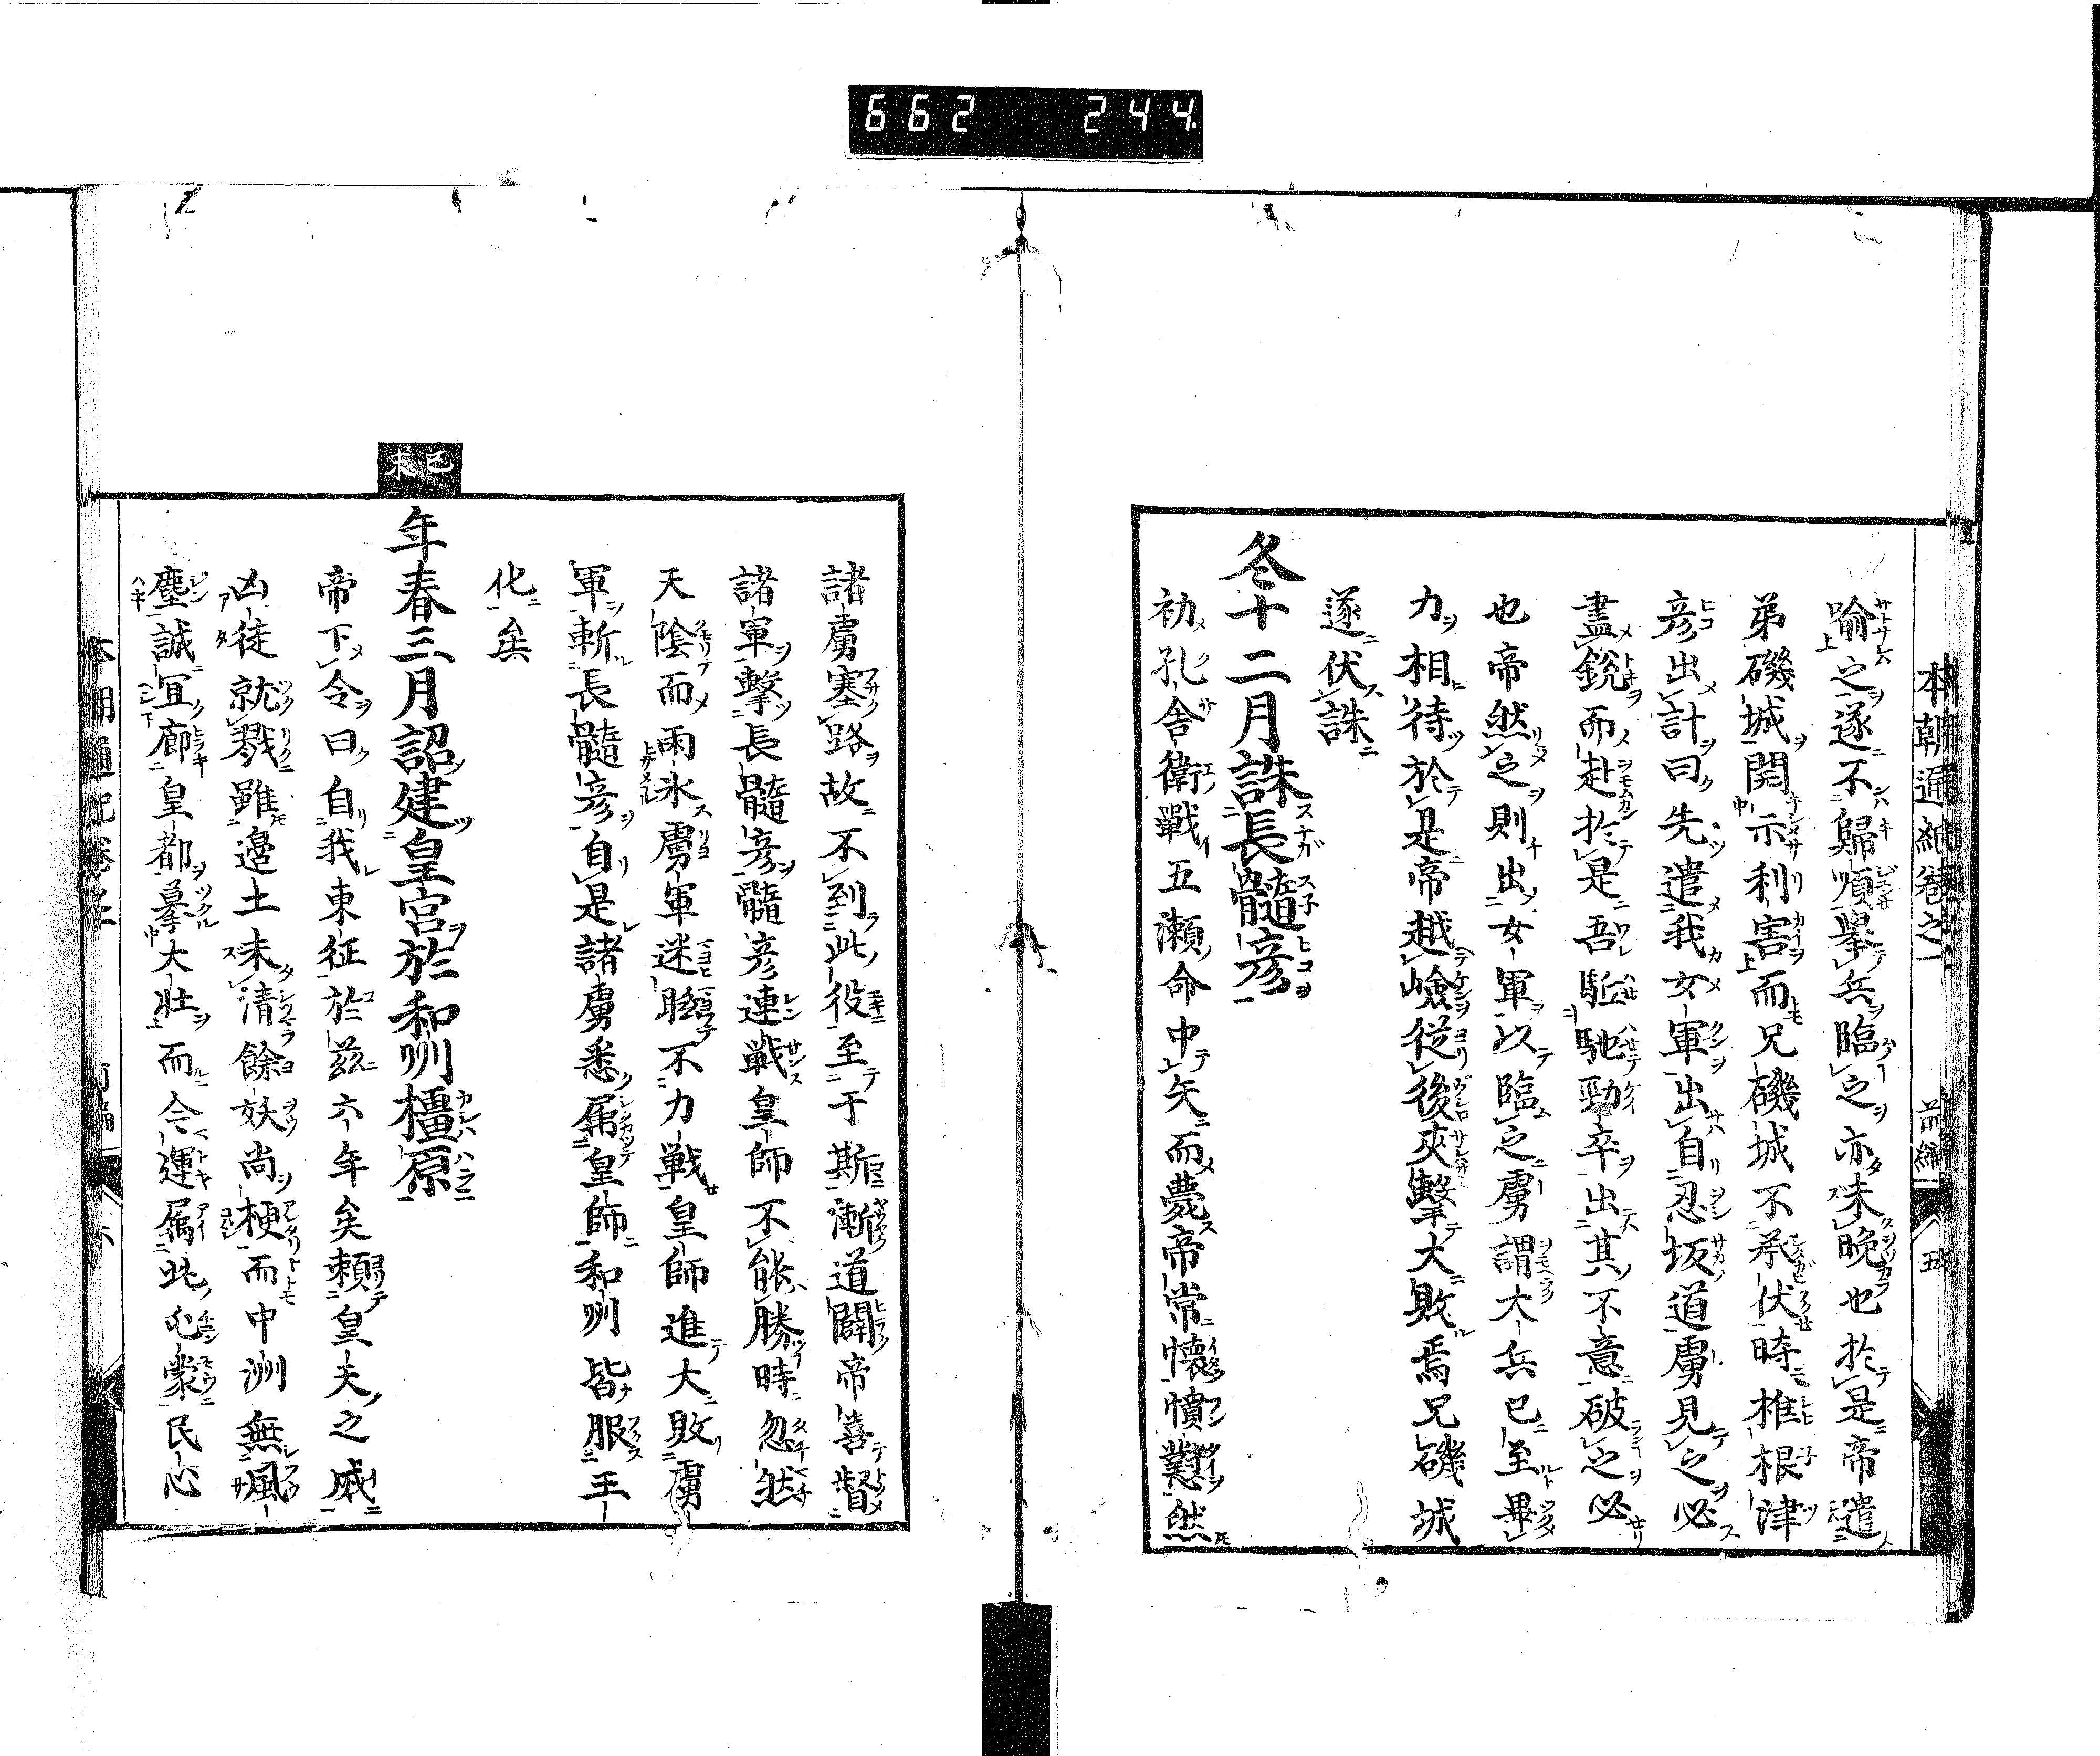 662 244
本朝通紀卷之一 前編 五
喩之遂不歸順擧兵臨之亦未晚也於是帝遣
弟磯城開示利害而兄磯城不承伏時椎根津
彦出計曰先遣我女軍出自忍坂道虜見之必
盡銳而赴於是吾駈馳勁卒出其不意破之必
也帝然之則出女軍以臨之虜謂大兵已至畢
力相待於是帝越嶮從後夾擊大敗焉兄磯城
遂伏誅
冬十二月誅長髓彦
初孔舍衛戰五瀨命中矢而薨帝常懷憤懟然
諸虜塞路故不到此役至于斯漸道闢帝善督
諸軍擊長髓彦髓彦連戰皇師不能勝時忽然
天陰而雨氷虜軍迷 不力戰皇師進大敗虜
軍斬長髓彦自是諸虜悉属皇師和州皆服王
化矣
己未
年春三月詔建皇宮於和州橿原
帝下令曰自我東征於茲六年矣賴皇天之威
凶徒就戮雖邊土未清餘妖尚梗而中洲無風
塵誠宜廓皇都摹大壯而今運属此屯蒙民心
六